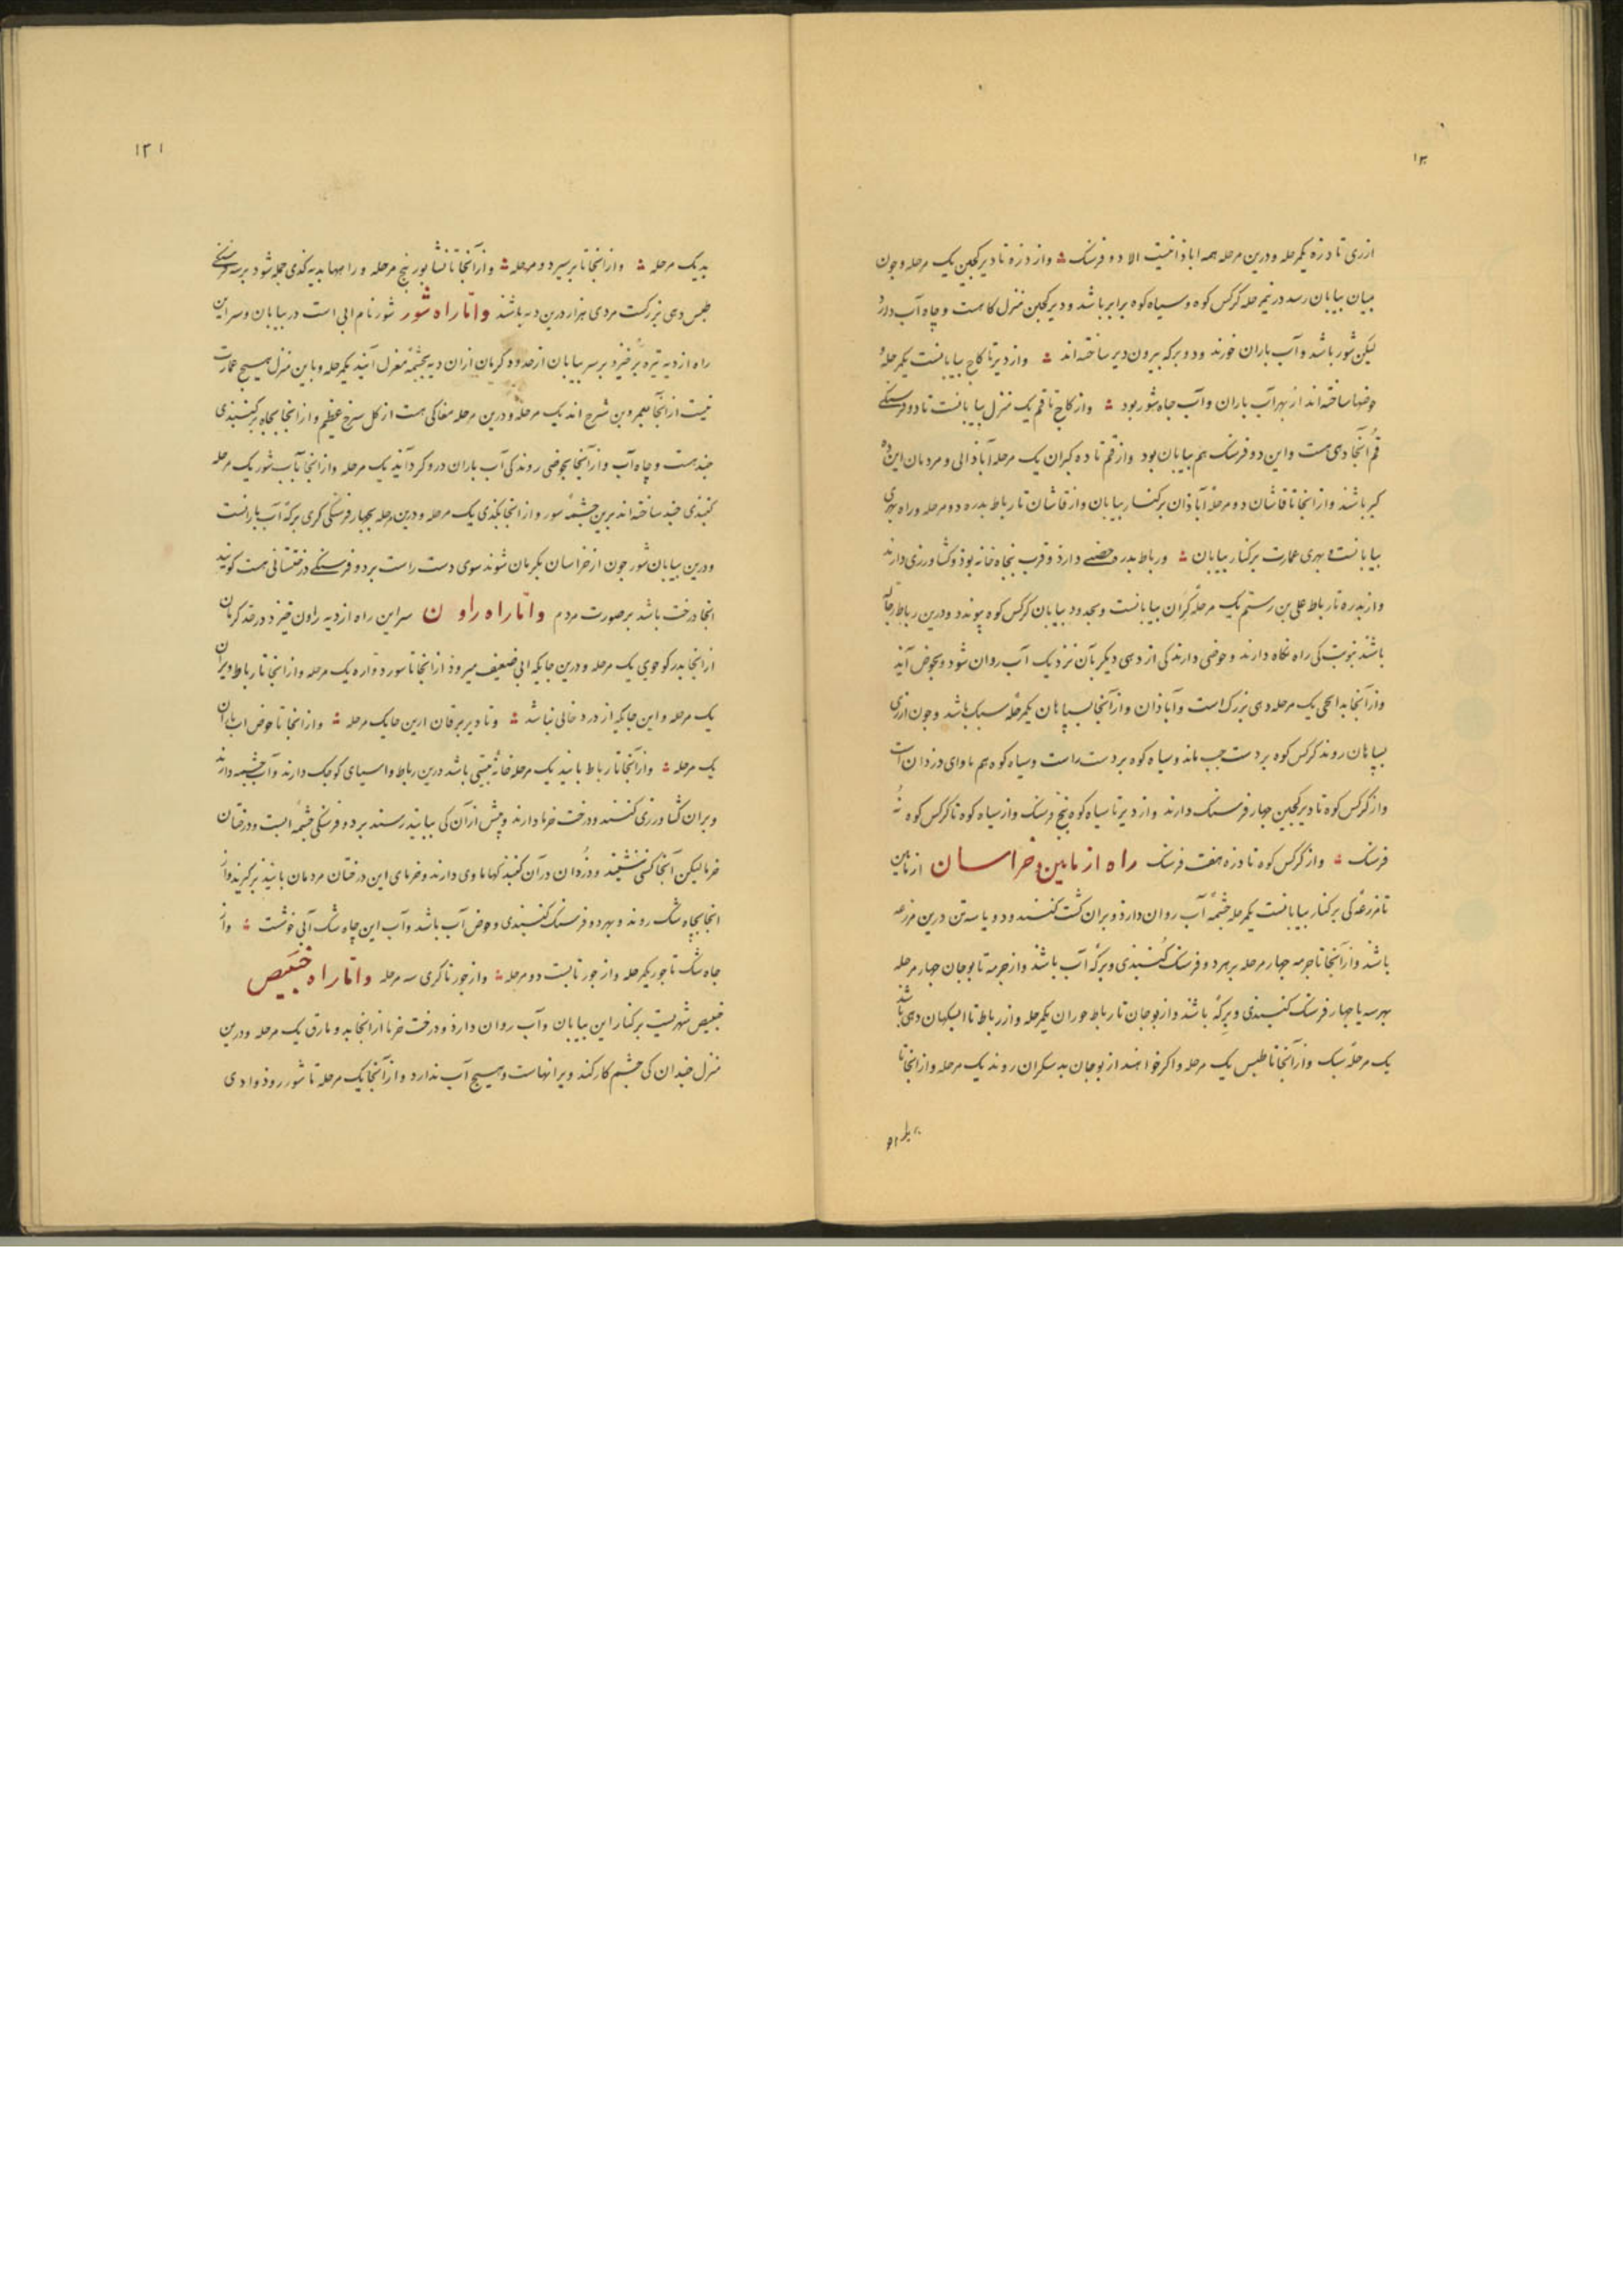 ۱۳
ازری تا دزه یکمرحله و درین مرحله همه اباذانیست الا دو فرسنک و از دزه تا دیر کجین یک مرحله و چون
میان بیابان رسد در نیمرحله کرکس کوه و سیاه کوه برابر باشد و دیر کجین منزل کاهست و چاه آب دارذ
لیکن شور باشد و آب باران خورند و دو برکه بیرون دیر ساخته‌اند و از دیر تا کاج بیابانست یکمرحله
حوضها ساخته‌اند از بهر آب باران و آب چاه شور بود و از کاج تا قم یک منزل بیابانست تا دو فرسنکے
قم آنجا دهی هست و این دو فرسنک هم بیابان بود و از قم تا ده کبران یک مرحله آباذانی و مردمان این ده
کبر باشند و از انجا تا قاشان دو مرحله آباذان بر کنار بیابان و از قاشان تا رباط بدره دو مرحله و راه بهری
بیابانست و بهری عمارت بر کنار بیابان و رباط بدره حصنی دارذ و قرب پنجاه خانه بوذ و کشاورزی دارند
و از بدره تا رباط علی بن رستم یک مرحله کران بیابانست و بحدود بیابان کرکس کوه پیوندد و درین رباط رجاله
باشند بنوبت کی راه نگاه دارند و حوضی دارند کی از دهی دیکر بآن نزدیک آب روان شود و بحوض آید
و از آنجا بدانجی یک مرحله دهی بزرک است و آباذان و از آنجا بسپاهان یکمرحله سبک باشد و چون ازری
بسپاهان روند کرکس کوه بر دست چب ماند و سیاه کوه بر دست راست و سیاه کوه هم ماوای دزدان است
و از کرکس کوه تا دیر کجین چهار فرسنک دارند و از دیر تا سیاه کوه پنج فرسنک و از سیاه کوه تا کرکس کوه نُه
فرسنک و از کرکس کوه تا دزه هفت فرسنک راه از نابین و خراسان از نابین
تا مزرعه کی بر کنار بیابانست یکمرحله چشمه آب روان دارذ و بران کشت کنند و دو یا سه تن درین مزرعه
باشد و از آنجا تا جرمه چهار مرحله بر هر دو فرسنک کنبذی و برکه آب باشد و از جرمه تا بوجان چهار مرحله
بهر سه یا چهار فرسنک کنبذی و برکه باشد و از بوجان تا رباط حوران یکمرحله و از رباط تا اسکهان دهی باشد
یک مرحله سبک و از آنجا تا طبس یک مرحله و اکر خواهند از بوجان بدسکران روند یک مرحله و از انجا تا
۱۳۱
بدیک مرحله و از انجا تا برسیر دو مرحله و از آنجا تا نشابور پنج مرحله و راهها بدیه کذی جمله شود بر سه فرسنکے
طبس دهی بزرکست مردی هزار درین دیه باشند و امّا راه شور شور نام ابی است در بیابان و سر این
راه از دیه تیزه برخیزد بر سر بیابان از حدود کرمان ازان دیه بچشمه مغزل آیند یکمرحله و باین منزل هیچ عمارت
نیست از آنجا بعمر و بن شرح اند یک مرحله و درین مرحله مغاکی هست از کل سرخ عظیم و از انجا بچاه بر کنبذی
چند هست و چاه آب و از آنجا بحوضی روند کی آب باران درو کرد آید یک مرحله و از انجا بآب شور یک مرحله
کنبذی چند ساخته‌اند برین چشمه شور و از انجا بکذی یک مرحله و درین مرحله بچهار فرسنکی کری برکه آب بارانست
و درین بیابان شور چون از خراسان بکرمان شوند سوی دست راست بر دو فرسنکے درختستانی هست کویند
انجا درخت باشد بر صورت مردم و امّا راه راون سر این راه از دیه راون خیزد در حد کرمان
از انجا بدرکوجوی یک مرحله و درین جایکه ابی ضعیف میروذ از انجا تا سور دواره یک مرحله و از انجا تا رباط ویران
یک مرحله و این جایکه از درد خالی نباشد و تا دیر برقان ازین جا یک مرحله و از انجا تا حوض اب باران
یک مرحله و از آنجا تا رباط بانید یک مرحله خانه بیستی باشد درین رباط و اسیای کوچک دارند و آب چشمه دارند
و بران کشاورزی کنند و درخت خرما دارند و پیش از آن کی ببانید رسند بر دو فرسنکی چشمه ابست و درختان
خرما لیکن آنجا کس ننشیند و دزدان در آن کنبذکها ماوی دارند و خرمای این درختان مردمان بانید برکیرند و از
انجا بچاه شک روند و بهر دو فرسنک کنبذی و حوض آب باشد و آب این چاه شک آبی خوشست و از
چاه شک تا جور یکمرحله و از جور تا بست دو مرحله و از جور تا کری سه مرحله و امّا راه خبیص
خبیص شهریست بر کنار این بیابان و آب روان دارذ و درخت خرما از انجا بدو مارق یک مرحله و درین
منزل چندان کی چشم کار کند ویرانهاست و هیچ آب ندارد و از آنجا یک مرحله تا شور روذ وادی